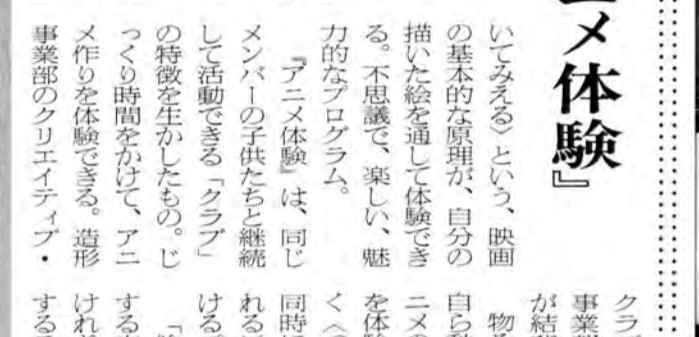 ニメ体験』
いてみえる〉という、映画
の基本的な原理が、自分の
描いた絵を通して体験でき
る。不思議で、楽しい、魅
力的なプログラム。
『アニメ体験』は、同じ
メンバーの子供たちと継続
して活動できる「クラブ」
の特徴を生かしたもの。じ
っくり時間をかけて、アニ
メ作りを体験できる。造形
事業部のクリエイティブ・
クラブ
事業部
が結
物
自ら
ニメの
を体験
く〈
同時に
れる
ける
する
けれ
する